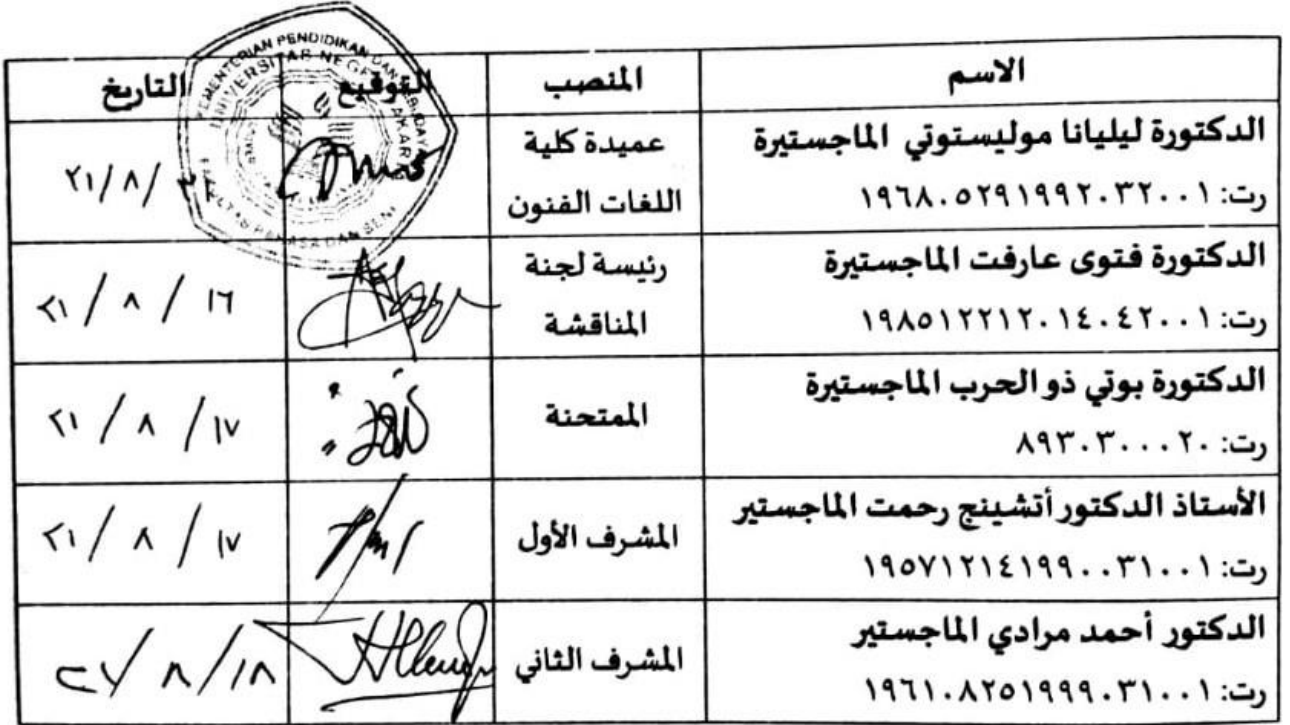 الاسم المنصب التوقيع التاريخ
الدكتورة ليليانا موليستوتي الماجستيرة
رت: ١٩٦٨٠٥٢٩١٩٩٢٠٣٢٠٠١
عميدة كلية
اللغات الفنون
٢١/٨/
الدكتورة فتوى عارفت الماجستيرة
رت: ١٩٨٥١٢٢١٢٠١٤٠٤٢٠٠١
رئيسة لجنة
المناقشة
١٦ / ٨ / ٢١
الدكتورة بوتي ذو الحرب الماجستيرة
رت: ٨٩٣٠٣٠٠٠٢٠
الممتحنة
١٧ / ٨ / ٢١
الأستاذ الدكتور أتشينج رحمت الماجستير
رت: ١٩٥٧١٢١٤١٩٩٠٠٣١٠٠١
المشرف الأول
١٧ / ٨ / ٢١
الدكتور أحمد مرادي الماجستير
رت: ١٩٦١٠٨٢٥١٩٩٩٠٣١٠٠١
المشرف الثاني
١٨/ ٨ /
KEMENTERIAN PENDIDIKAN DAN KEBUDAYAAN
UNIVERSITAS NEGERI JAKARTA
FAKULTAS BAHASA DAN SENI